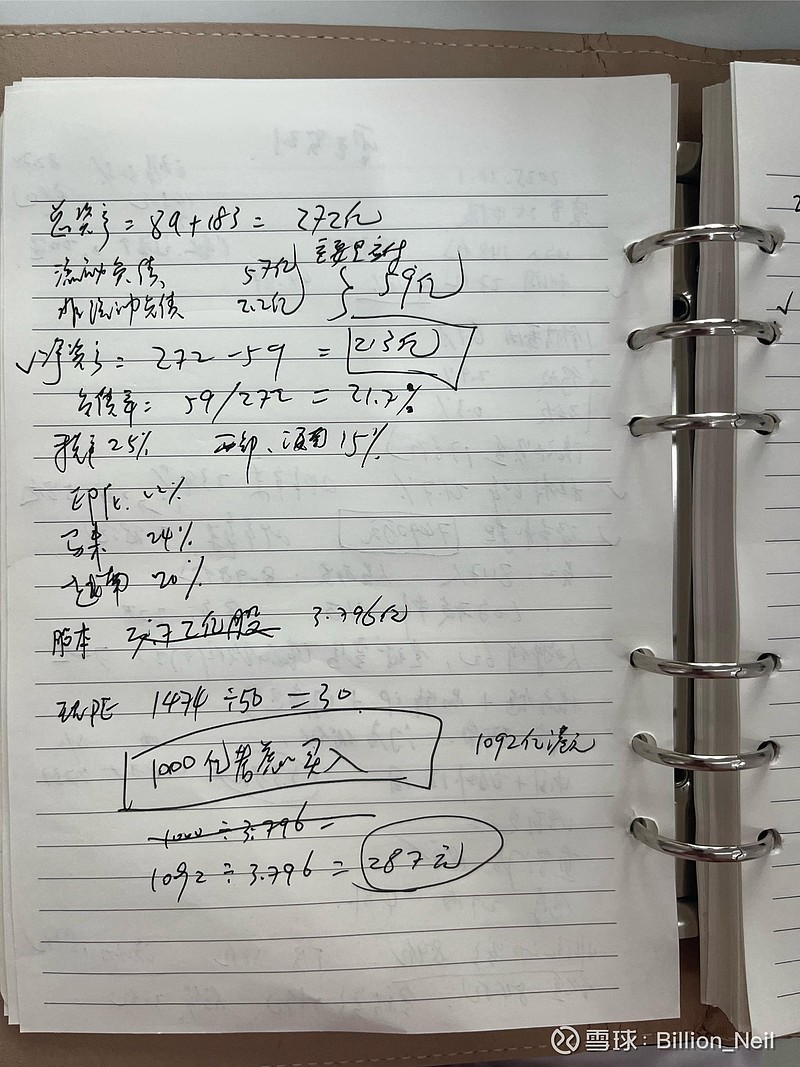 总资产 = 89+183 = 272亿
流动负债 57亿 主要是应付
非流动负债 2.2亿 } 59亿
✓净资产 = 272-59 = 213亿
负债率: 59/272 = 21.7%
税率 25% 西部、海南 15%
印尼 22%
马来 24%
越南 20%
股本 3.796亿
现PE 1474÷50 = 30
1000亿考虑买入 1092亿港元
1000÷3.796=
1092÷3.796 = 287元
雪球:Billion_Neil